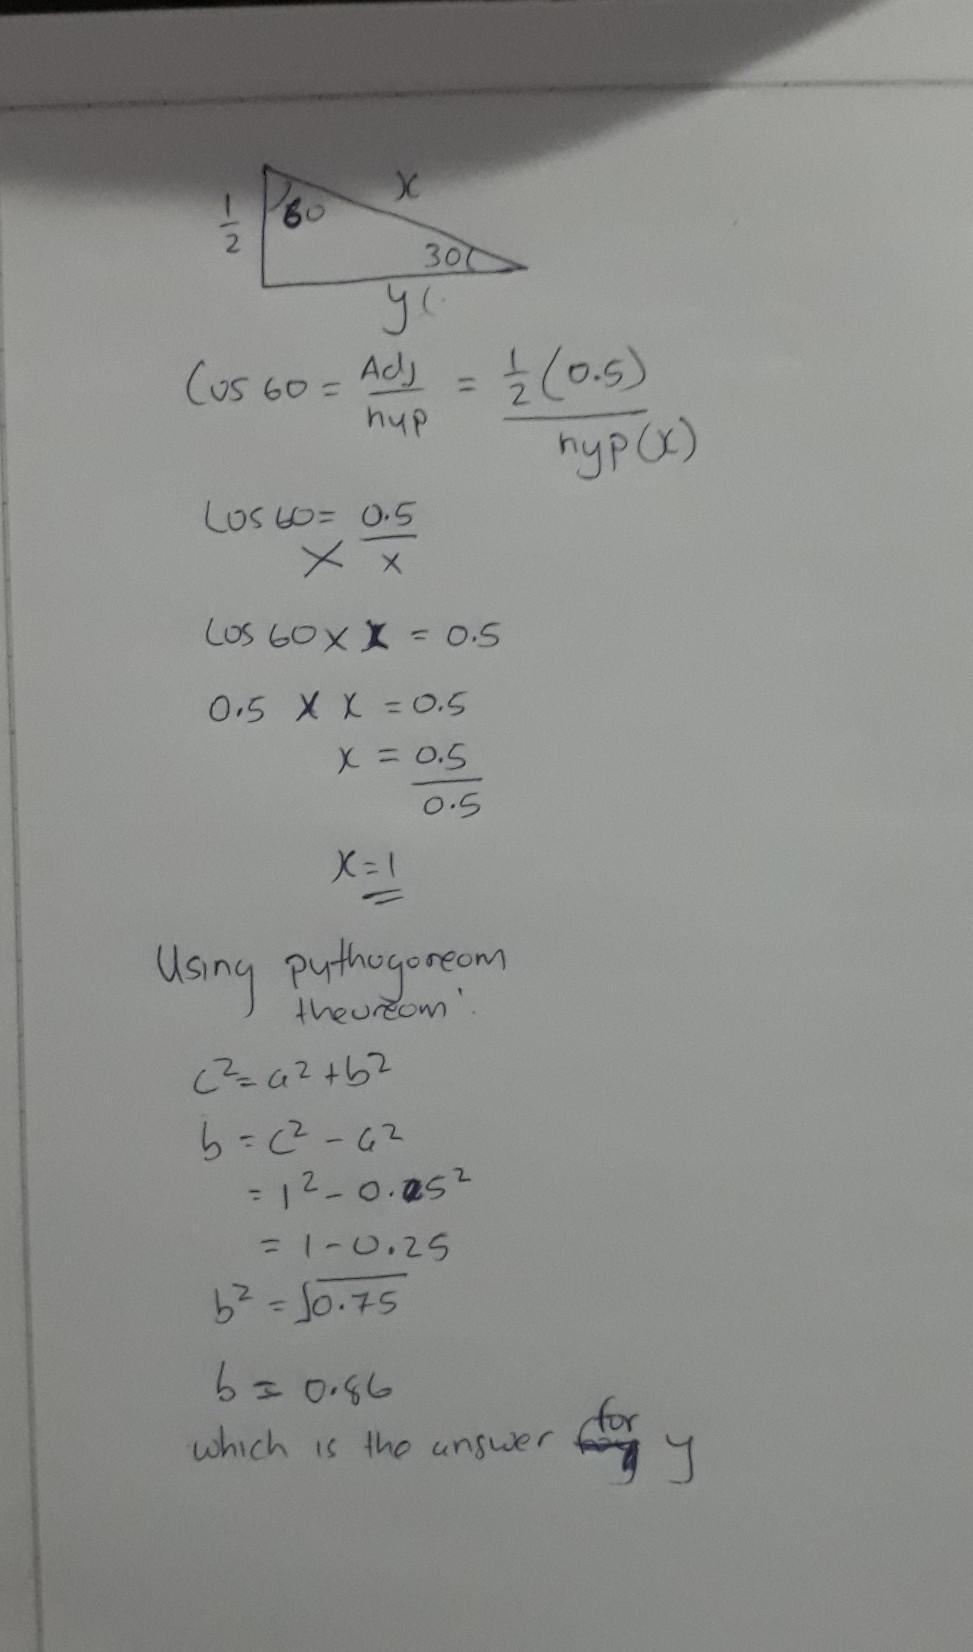 1/2 60 x
30
y
Cos 60 = Adj/hyp = 1/2 (0.5)/hyp(x)
Cos 60 = 0.5/x
Cos 60 × x = 0.5
0.5 × x = 0.5
x = 0.5/0.5
x = 1
Using pythogoreom
theoreom:
c² = a² + b²
b = c² - a²
= 1² - 0.5²
= 1 - 0.25
b² = √0.75
b = 0.86
which is the answer for y